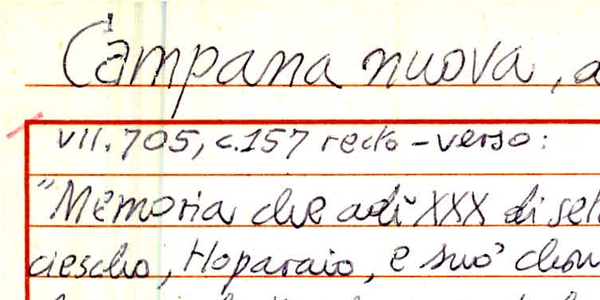 Campana nuova, a
VII. 705, c.157 recto-verso:
"Memoria che adì XXX di set
ciescho, Hoparaio, e suo'